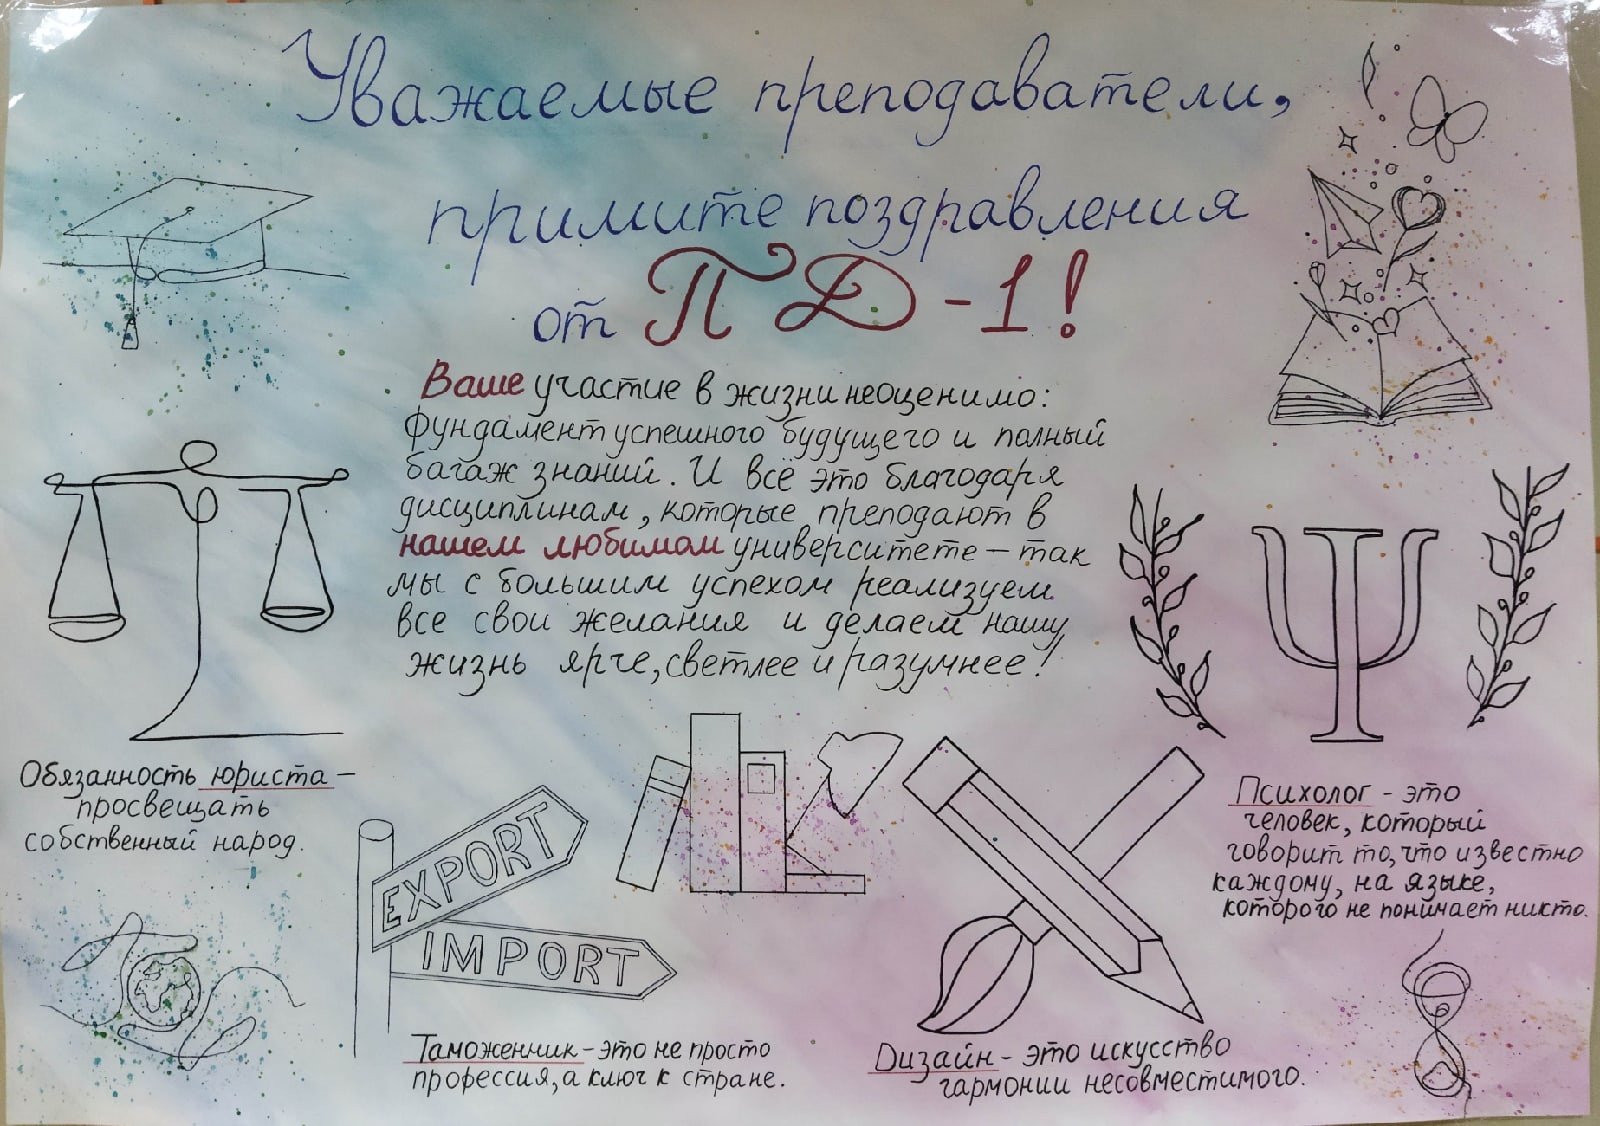 Уважаемые преподаватели,
примите поздравления
от ПД-1!
Ваше участие в жизни неоценимо:
фундамент успешного будущего и полный
багаж знаний. И всё это благодаря
дисциплинам, которые преподают в
нашем любимом университете – так
мы с большим успехом реализуем
все свои желания и делаем нашу
жизнь ярче, светлее и разумнее!
Обязанность юриста –
просвещать
собственный народ.
EXPORT
IMPORT
Таможенник – это не просто
профессия, а ключ к стране.
Дизайн – это искусство
гармонии несовместимого.
Ψ
Психолог – это
человек, который
говорит то, что известно
каждому, на языке,
которого не понимает никто.